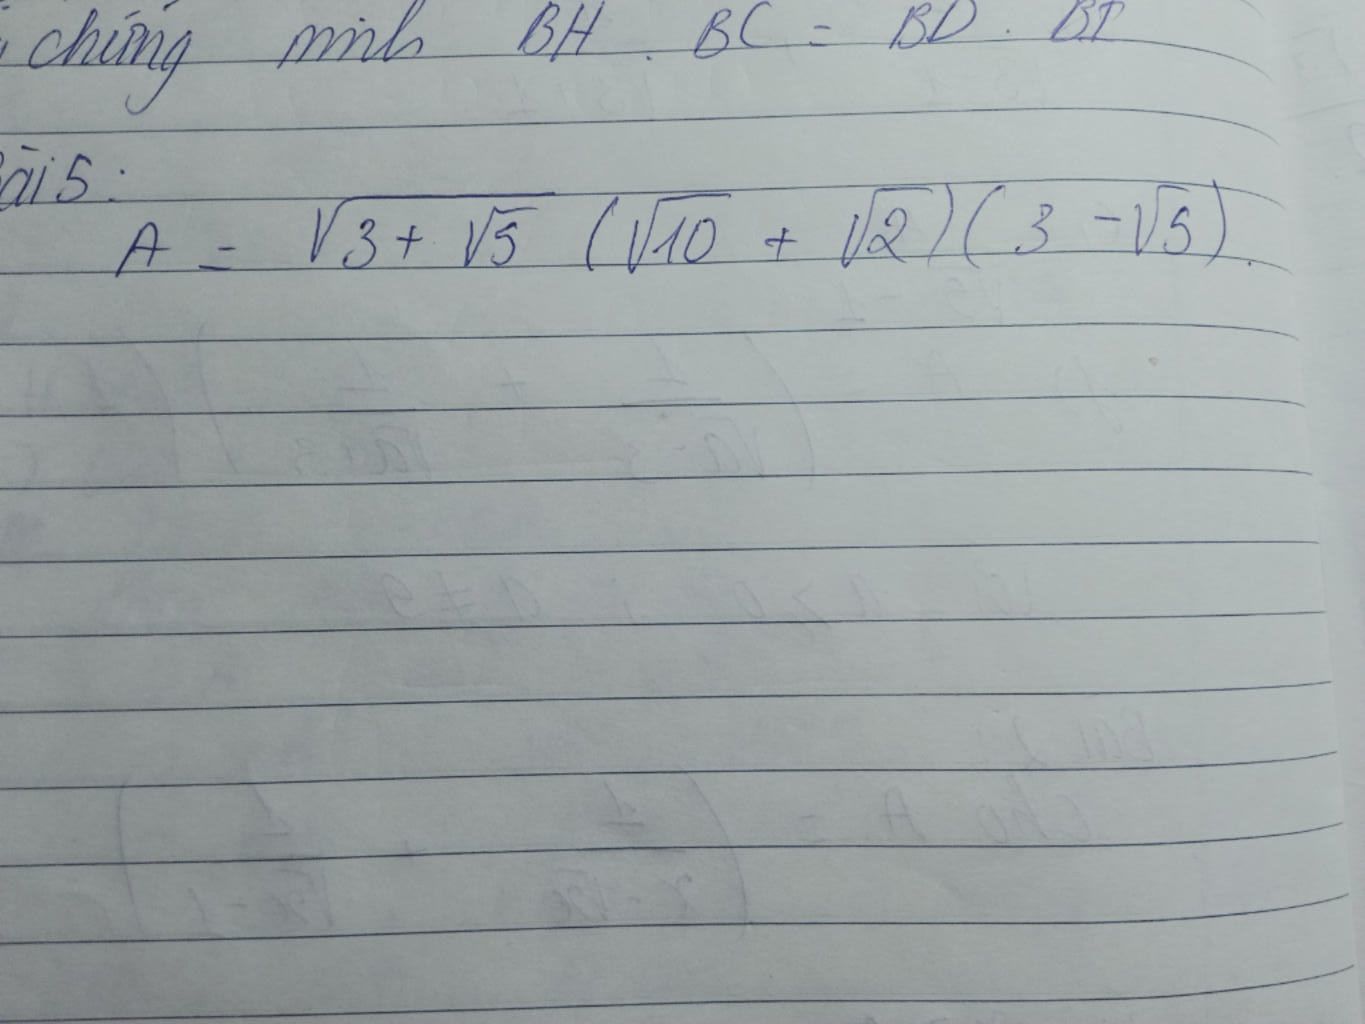 chứng minh BH . BC = BD . BI
Bài 5:
A = √(3 + √5) (√10 + √2)(3 - √5).